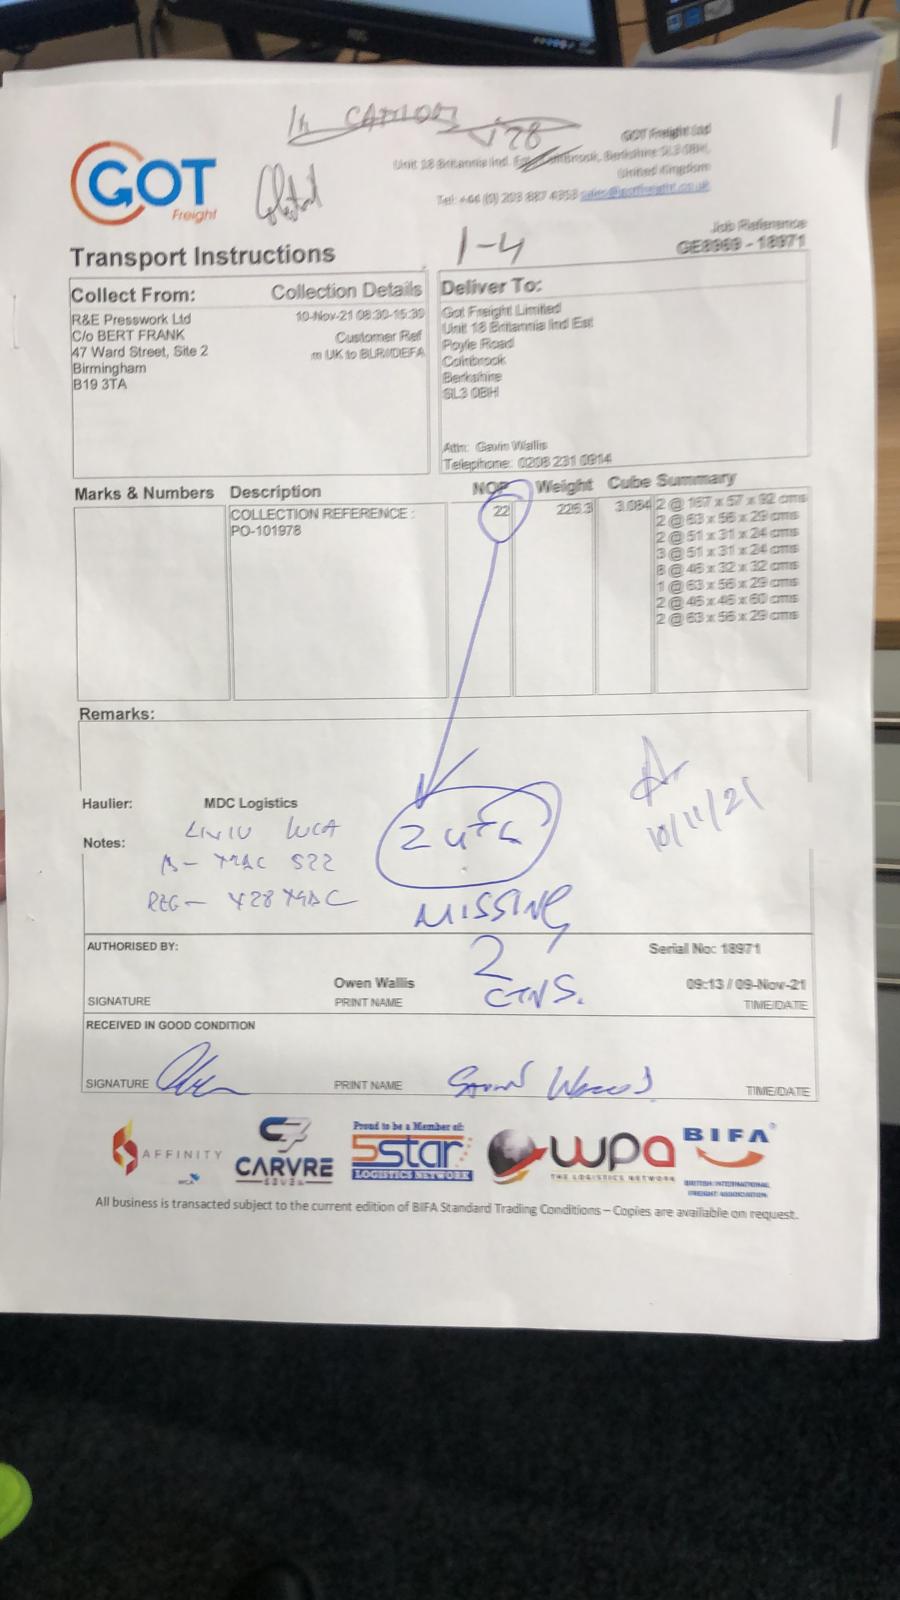 GOT
Freight
GOT Freight Ltd
Unit 18 Britannia Ind. Brook, Berkshire SL3 0BH,
United Kingdom
Tel: +44 (0) 203 887 4353 sales@gotfreight.co.uk
1-4
Job Reference
GE8969 - 18971
Transport Instructions
Collect From: Collection Details
R&E Presswork Ltd 10-Nov-21 08:30-15:30
C/o BERT FRANK Customer Ref
47 Ward Street, Site 2 m UK to BLR/IDEFA
Birmingham
B19 3TA
Deliver To:
Got Freight Limited
Unit 18 Britannia Ind Est
Poyle Road
Colnbrook
Berkshire
SL3 0BH
Attn: Gavin Wallis
Telephone: 0208 231 0914
Marks & Numbers Description NOP Weight Cube Summary
COLLECTION REFERENCE : 22 226.3 3.084 2 @ 167 x 57 x 92 cms
PO-101978 2 @ 63 x 56 x 29 cms
2 @ 51 x 31 x 24 cms
3 @ 51 x 31 x 24 cms
8 @ 46 x 32 x 32 cms
1 @ 63 x 56 x 29 cms
2 @ 46 x 46 x 60 cms
2 @ 63 x 56 x 29 cms
Remarks:
Haulier: MDC Logistics
LIVIU LUCA
Notes:
REG -
10/11/21
MISSING
2
CTNS.
AUTHORISED BY: Serial No: 18971
Owen Wallis 09:13 / 09-Nov-21
SIGNATURE PRINT NAME TIME/DATE
RECEIVED IN GOOD CONDITION
SIGNATURE PRINT NAME TIME/DATE
AFFINITY
WCA
CARVRE
SEVEN
Proud to be a Member of:
5star
LOGISTICS NETWORK
wpa
THE LOGISTICS NETWORK
BIFA
BRITISH INTERNATIONAL
FREIGHT ASSOCIATION
All business is transacted subject to the current edition of BIFA Standard Trading Conditions – Copies are available on request.